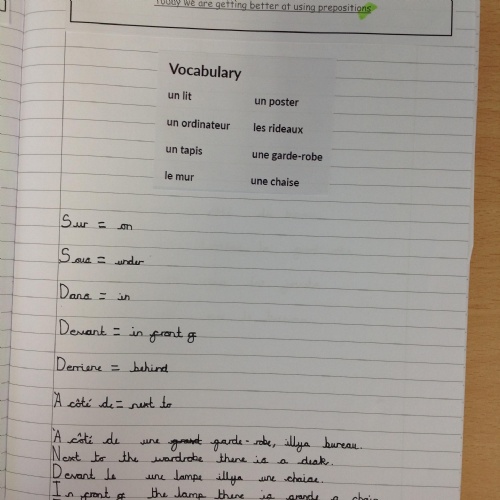 Today we are getting better at using prepositions
Vocabulary
un lit
un poster
un ordinateur
les rideaux
un tapis
une garde-robe
le mur
une chaise
Sur = on
Sous = under
Dans = in
Devant = in front of
Derriere = behind
À côté de = next to
À côté de une garde-robe, illya bureau.
Next to the wardrobe there is a desk.
Devant le une lampe illya une chaise.
In front of the lamp there is a chair